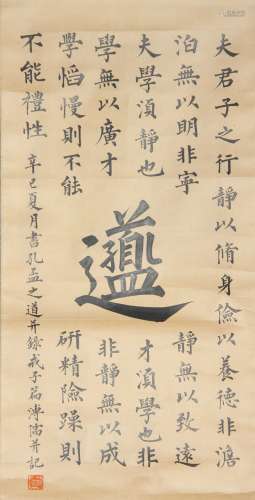 夫君子之行靜以脩身儉以養德非澹
泊無以明非寧靜無以致遠
夫學須靜也才須學也非
學無以廣才非靜無以成
學慆慢則不能研精險躁則
不能禮性
辛巳夏月書孔孟之道并錄戒子篇溥儒并記